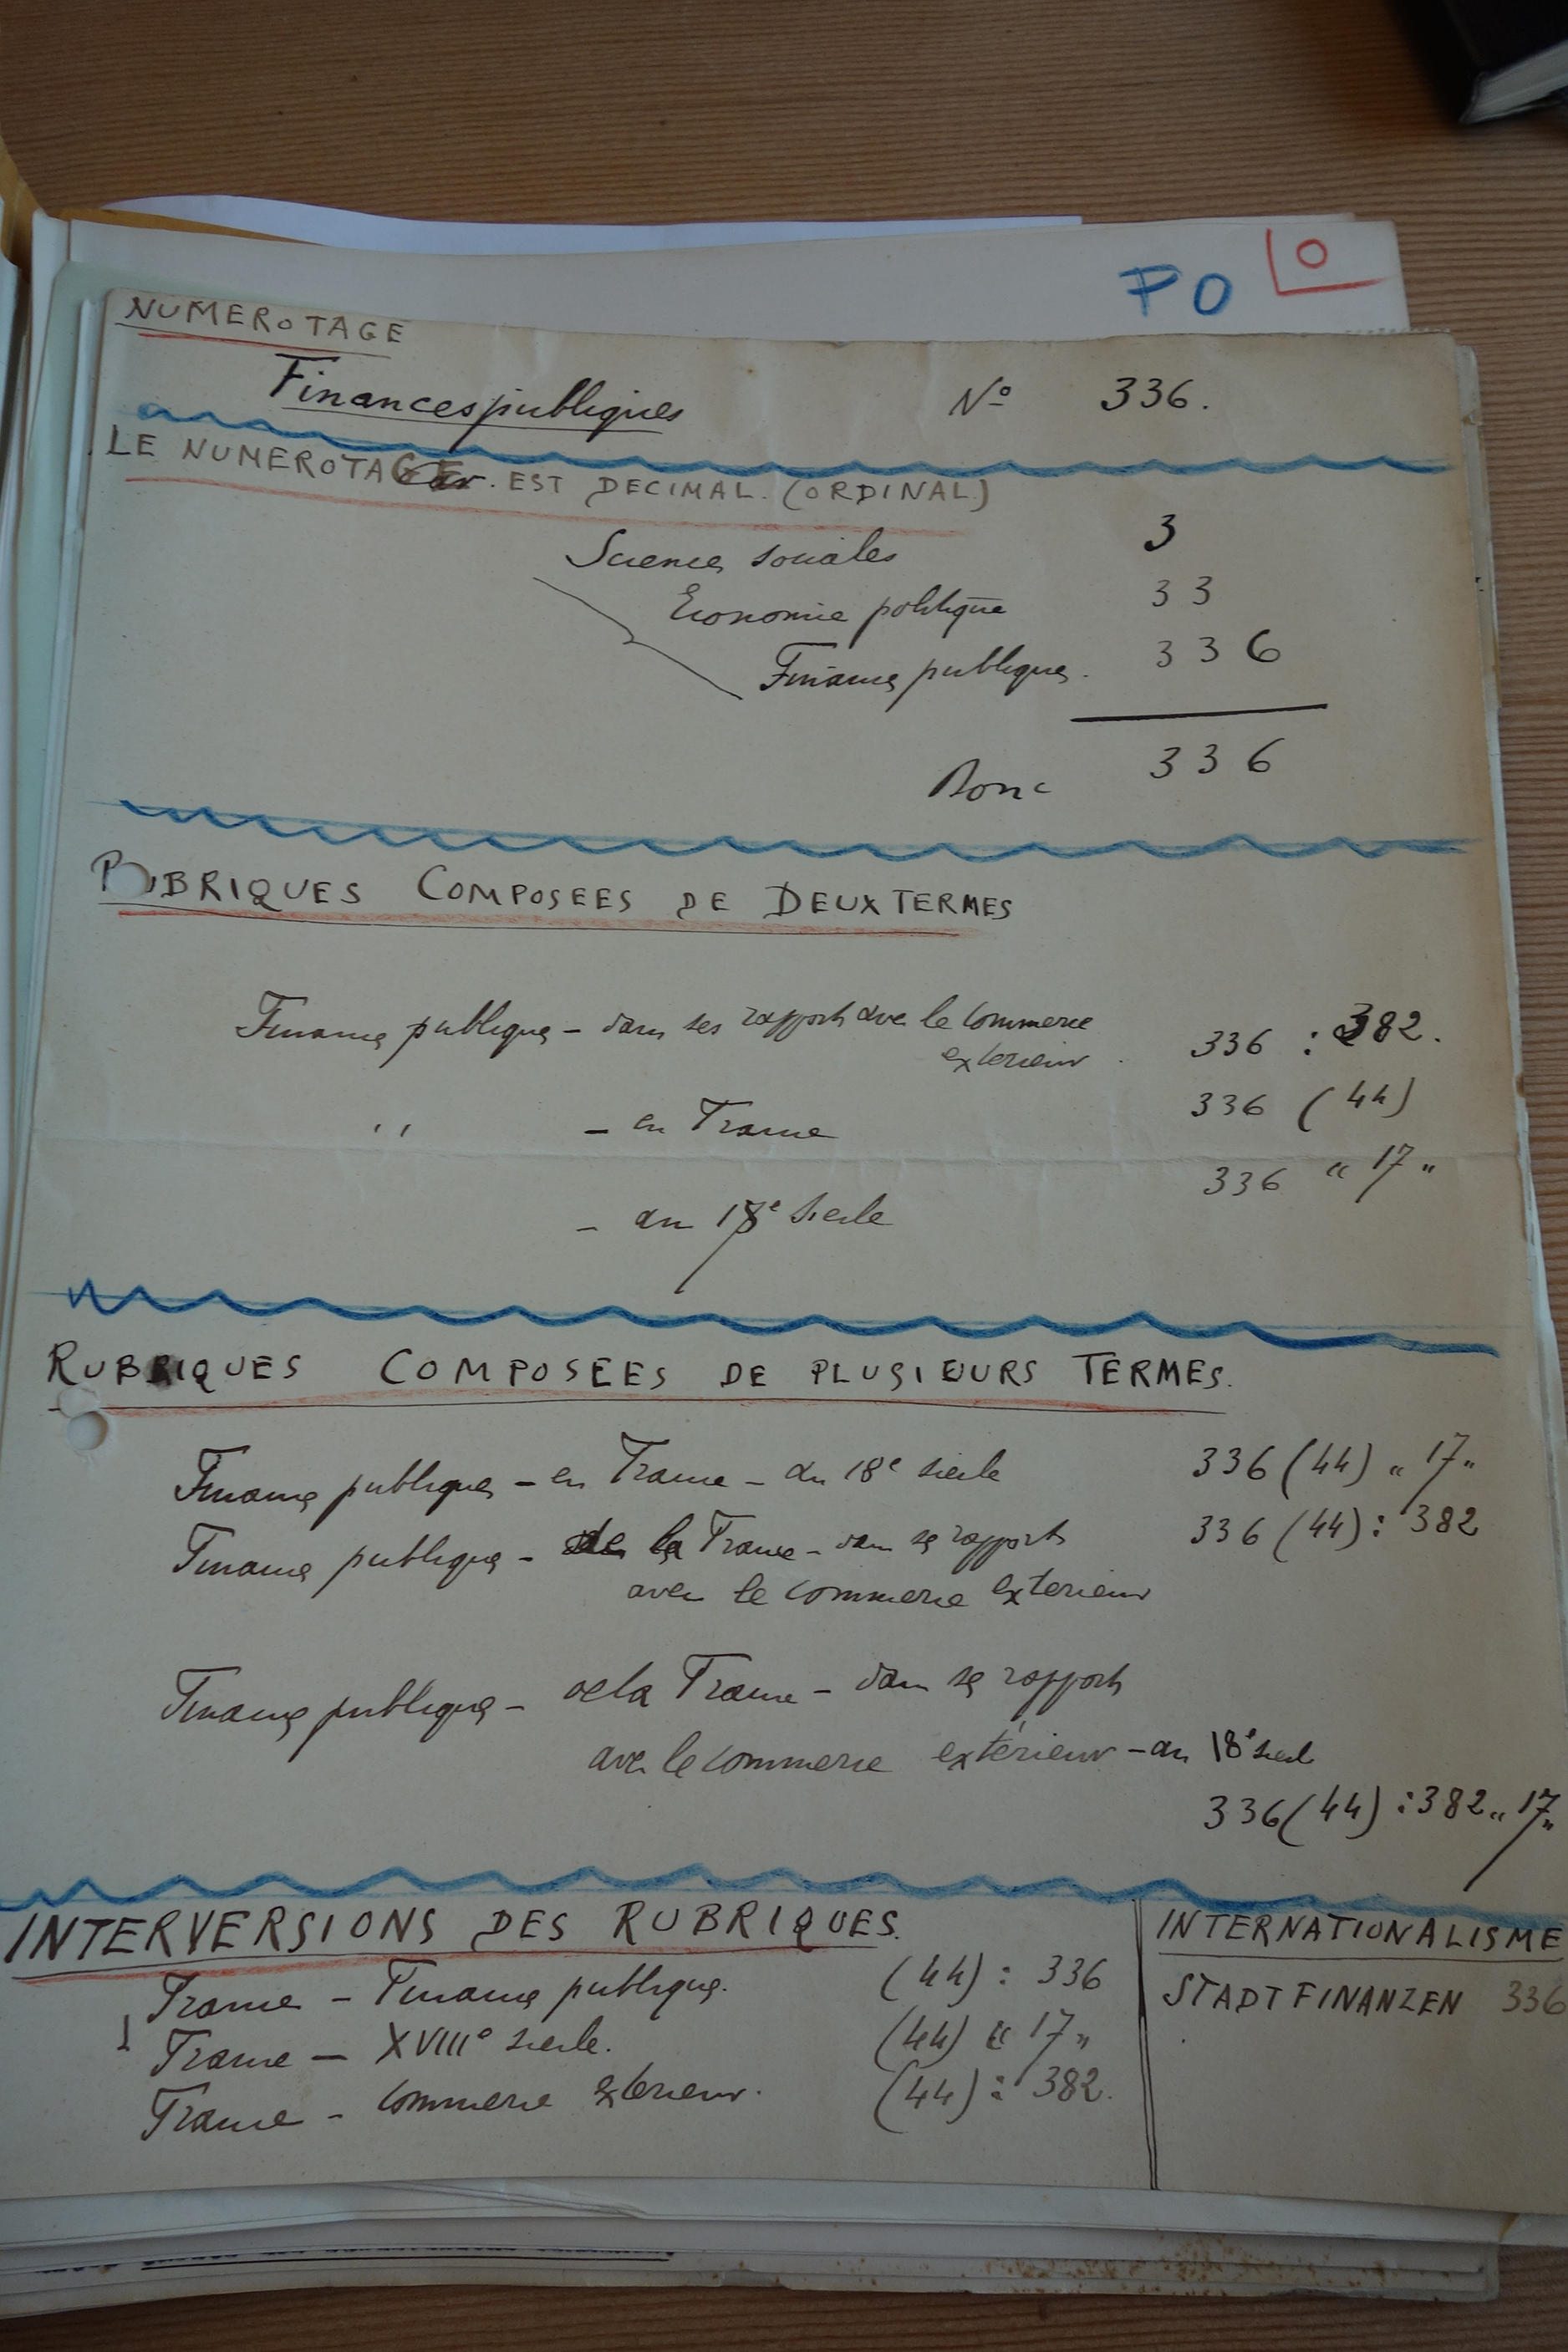 FO
O
NUMEROTAGE
Finances publiques No 336.
LE NUMEROTAGE. EST DECIMAL. (ORDINAL)
Sciences sociales 3
Economie politique 33
Finances publiques. 336
Donc 336
RUBRIQUES COMPOSEES DE DEUX TERMES
Finances publiques - dans ses rapports avec le commerce
exterieur. 336 : 382.
,, - en France 336 (44)
- au 18e siecle 336 " 17 "
RUBRIQUES COMPOSEES DE PLUSIEURS TERMES.
Finances publiques - en France - au 18e siecle 336 (44) " 17 "
Finances publiques - de la France - dans ses rapports 336 (44) : 382
avec le commerce exterieur
Finances publiques - de la France - dans ses rapports
avec le commerce extérieur - au 18e siecle
336 (44) : 382 " 17 "
INTERVERSIONS DES RUBRIQUES.
France - Finances publiques. (44) : 336
France - XVIIIe siecle. (44) " 17 "
France - commerce exterieur. (44) : 382.
INTERNATIONALISME
STADTFINANZEN 336